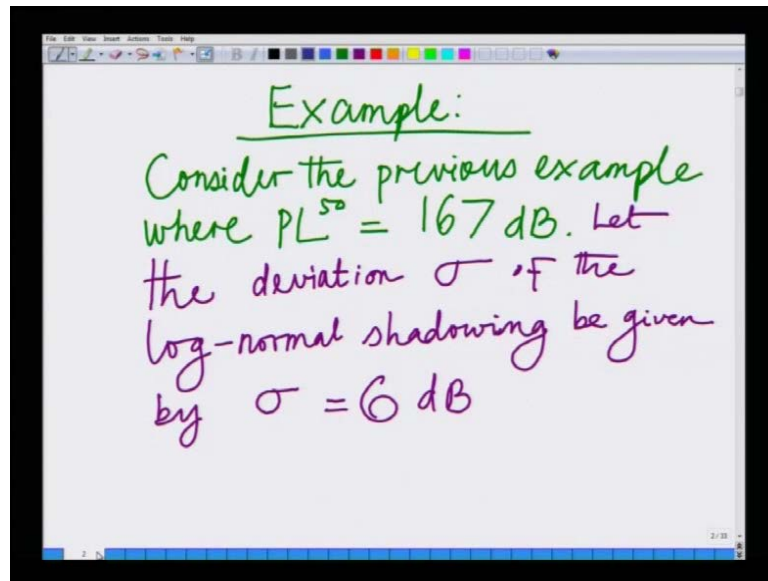 File Edit View Insert Actions Tools Help
Example:
Consider the previous example
where PL⁵⁰ = 167 dB. Let
the deviation σ of the
log-normal shadowing be given
by σ = 6 dB
2
2/33